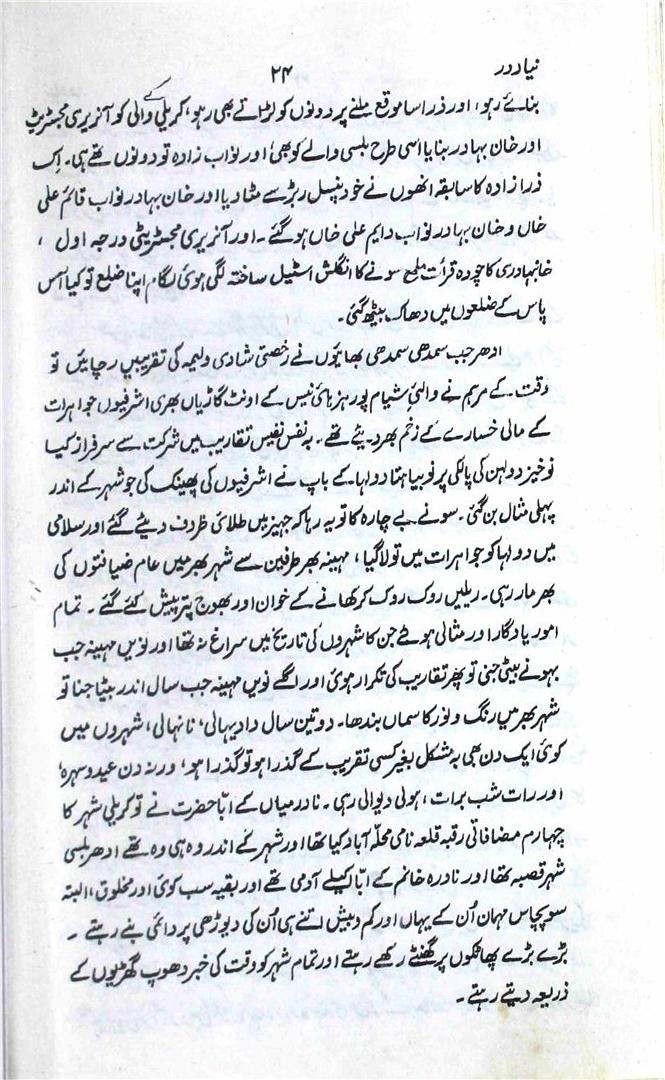 نیا دور
۲۴
بنائے رہو، اور ذرا سا موقع ملنے پر دونوں کو لڑاتے بھی رہو، کریلی کے والی کو آنریری مجسٹریٹ
اور خان بہادر بنایا اسی طرح بلسی والے کو بھی اور نواب زادہ تو دونوں تھے ہی۔ اِس
ذرا زادہ کا سابقہ انھوں نے خود پنسل ربڑ سے مٹا دیا اور خان بہادر نواب قائم علی
خاں و خان بہادر نواب دایم علی خاں ہو گئے ۔ اور آنریری مجسٹریٹی درجہ اول ،
خانبہادری کا چودہ قرأت ملمع سونے کا انگلش اسٹیل ساختہ لگی ہوئی لگام اپنا ضلع تو کیا آس
پاس کے ضلعوں میں دھاک بیٹھ گئی۔
ادھر جب سمدھی سمدھی بھائیوں نے رخصتی شادی ولیمہ کی تقریبیں رچائیں تو
وقت کے مرہم نے والئی شیام پور ہز ہائی نیس کے اونٹ گاڑیاں بھری اشرفیوں جواہرات
کے مالی خسارے کے زخم بھر دیئے تھے۔ بہ نفس نفیس تقاریب میں شرکت سے سرفراز کیا
نوخیز دولہن کی پالکی پر نوبیاہتا دولہا کے باپ نے اشرفیوں کی پھینک کی جو شہر کے اندر
پہلی مثال بن گئی۔ سونے بے چارہ کا تو یہ رہا کہ جہیز میں طلائی ظروف دیئے گئے اور سلامی
میں دولہا کو جواہرات میں تولا گیا، مہینہ بھر طرفین سے شہر بھر میں عام ضیافتوں کی
بھرمار رہی۔ ریلیں روک روک کر کھانے کے خوان اور بھوج پتر پیش کئے گئے ۔ تمام
امور یادگار اور مثالی ہوئے جن کا شہروں کی تاریخ میں سراغ نہ تھا اور نویں مہینہ جب
بہو نے بیٹی جنی تو پھر تقاریب کی تکرار ہوئی اور اگلے نویں مہینہ جب سال اندر بیٹا جنا تو
شہر بھر میں رنگ و نور کا سماں بندھا۔ دو تین سال دادیہالی، نانہالی، شہروں میں
کوئی ایک دن بھی بہ مشکل بغیر کسی تقریب کے گذرا ہو تو گذرا ہو، ورنہ دن عید و سہرہ،
اور رات شب برات، ہولی دیوالی رہی۔ نادر میاں کے ابا حضرت نے تو کریلی شہر کا
چہارم مضافاتی رقبہ قلعہ نامی محلہ آباد کیا تھا اور شہر کے اندر وہ ہی وہ تھے ادھر بلسی
شہر قصبہ تھا اور نادرہ خانم کے ابا اکیلے آدمی تھے اور بقیہ سب کوئی اور مخلوق، البتہ
سو پچاس مہمان اُن کے یہاں اور کم و بیش اتنے ہی اُن کی دیوڑھی پر دائمی بنے رہتے ۔
بڑے بڑے پھاٹکوں پر گھنٹے رکھے رہتے اور تمام شہر کو وقت کی خبر دھوپ گھڑیوں کے
ذریعہ دیتے رہتے۔